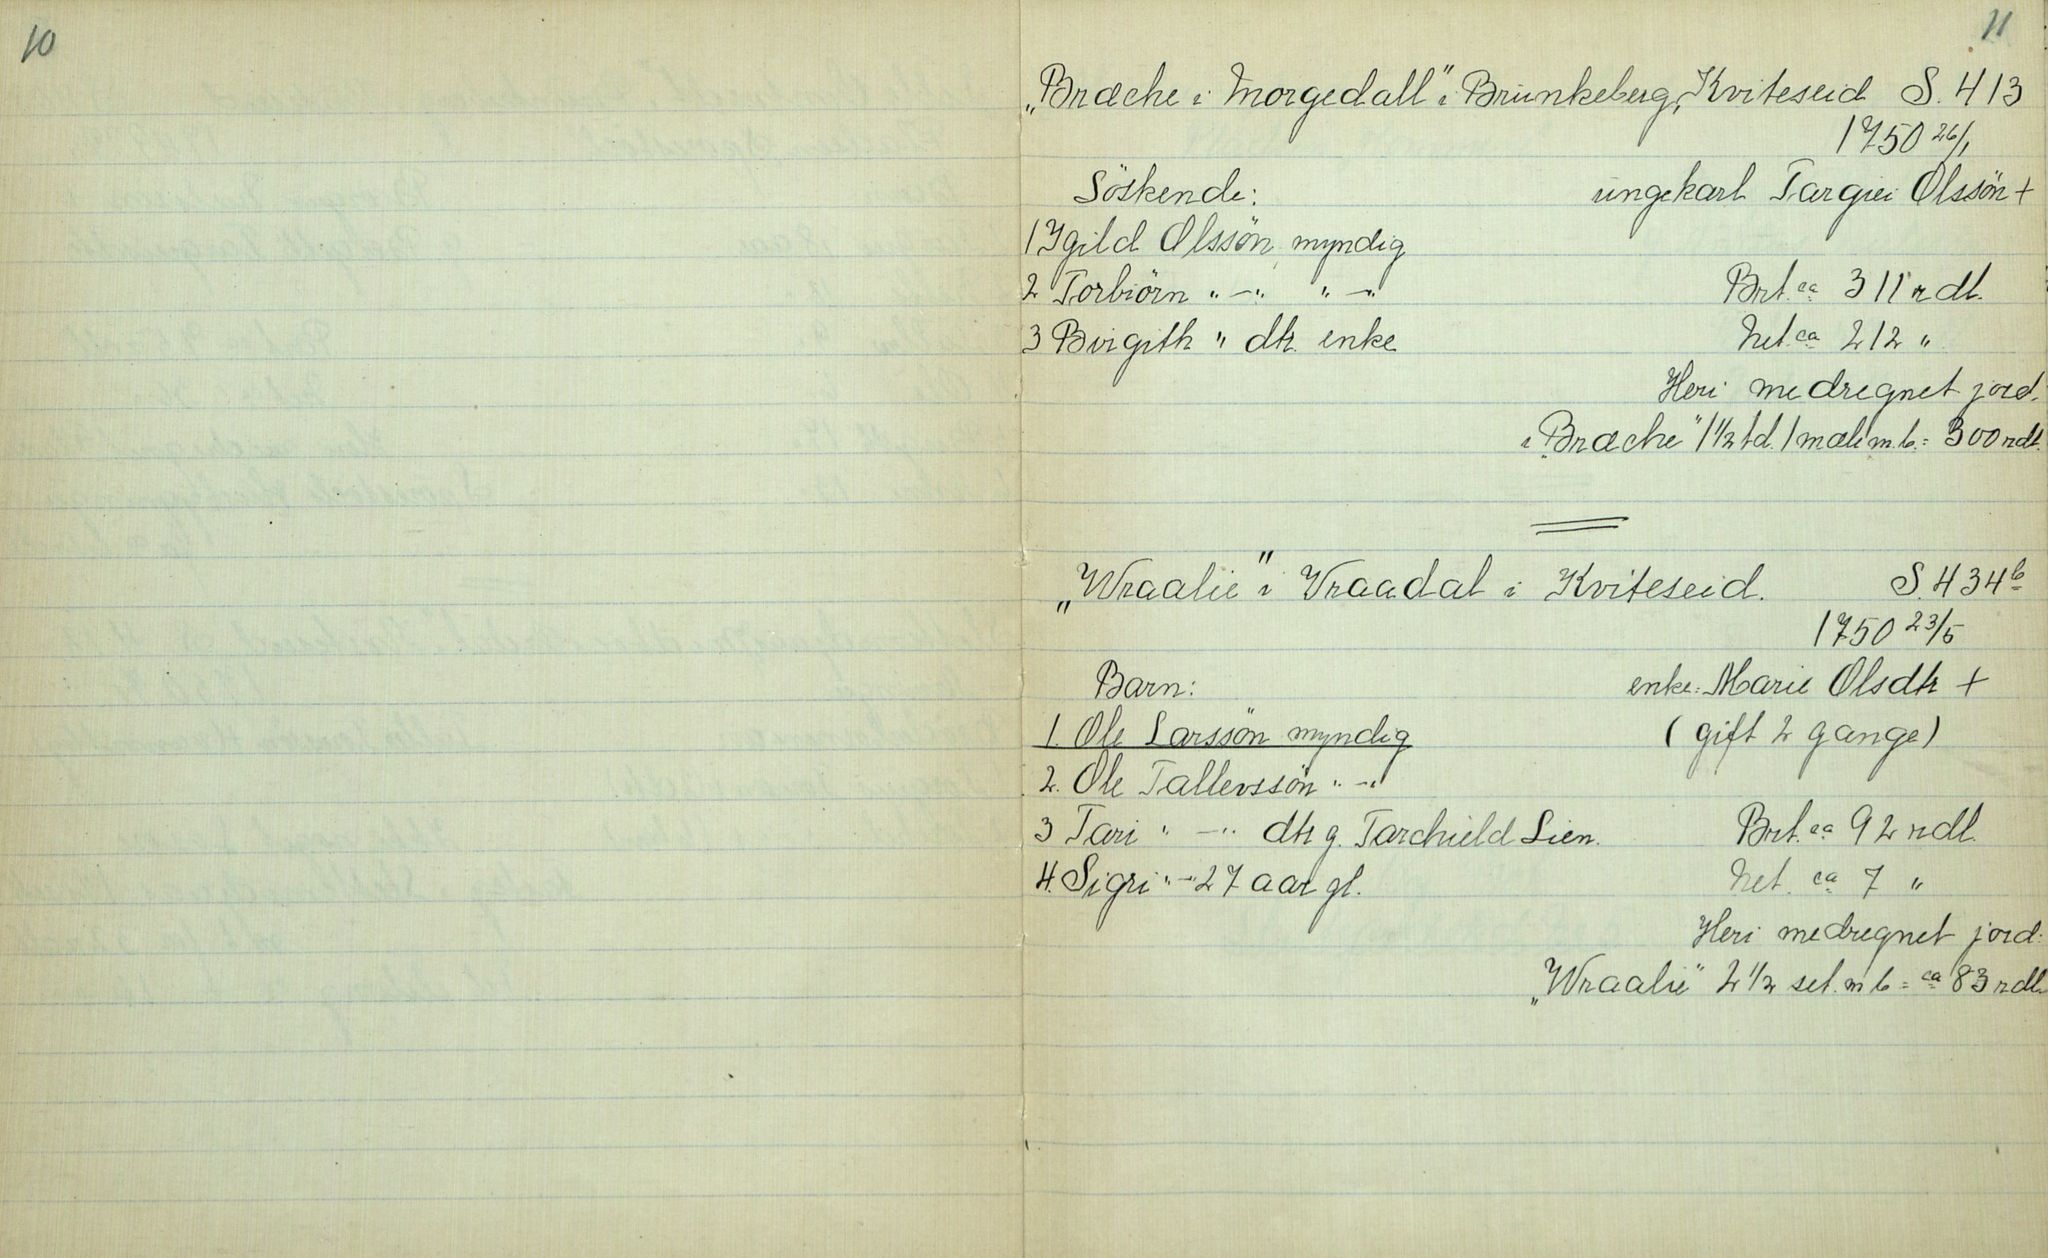 10
11
„Bræche i Morgedall" i Brunkeberg, Kviteseid S. 413
1750 26/1
Söskende: ungekarl Targiei Olssön +
1 Ygild Olssön myndig
2 Torbiörn " - " " - " Brt. ca 311 rdl.
3 Birgith " dtr. enke Net. ca 212 "
Heri medregnet jord.
i „Bræche" 1 1/2 td. 1 mæle m. b. = 300 rdl.
„Wraalie" i Vraadal i Kviteseid. S. 434b
1750 23/5
Barn: enke: Marie Olsdtr +
1. Ole Larssön myndig (gift 2 gange)
2. Ole Tallevssön " - "
3 Tari " - " dtr g. Tarchield Lien. Brt. ca 92 rdl.
4. Sigri " - " 27 aar gl. Net. ca 7 "
Heri medregnet jord:
„Wraalie" 2 1/2 set. m b = ca 83 rdl.